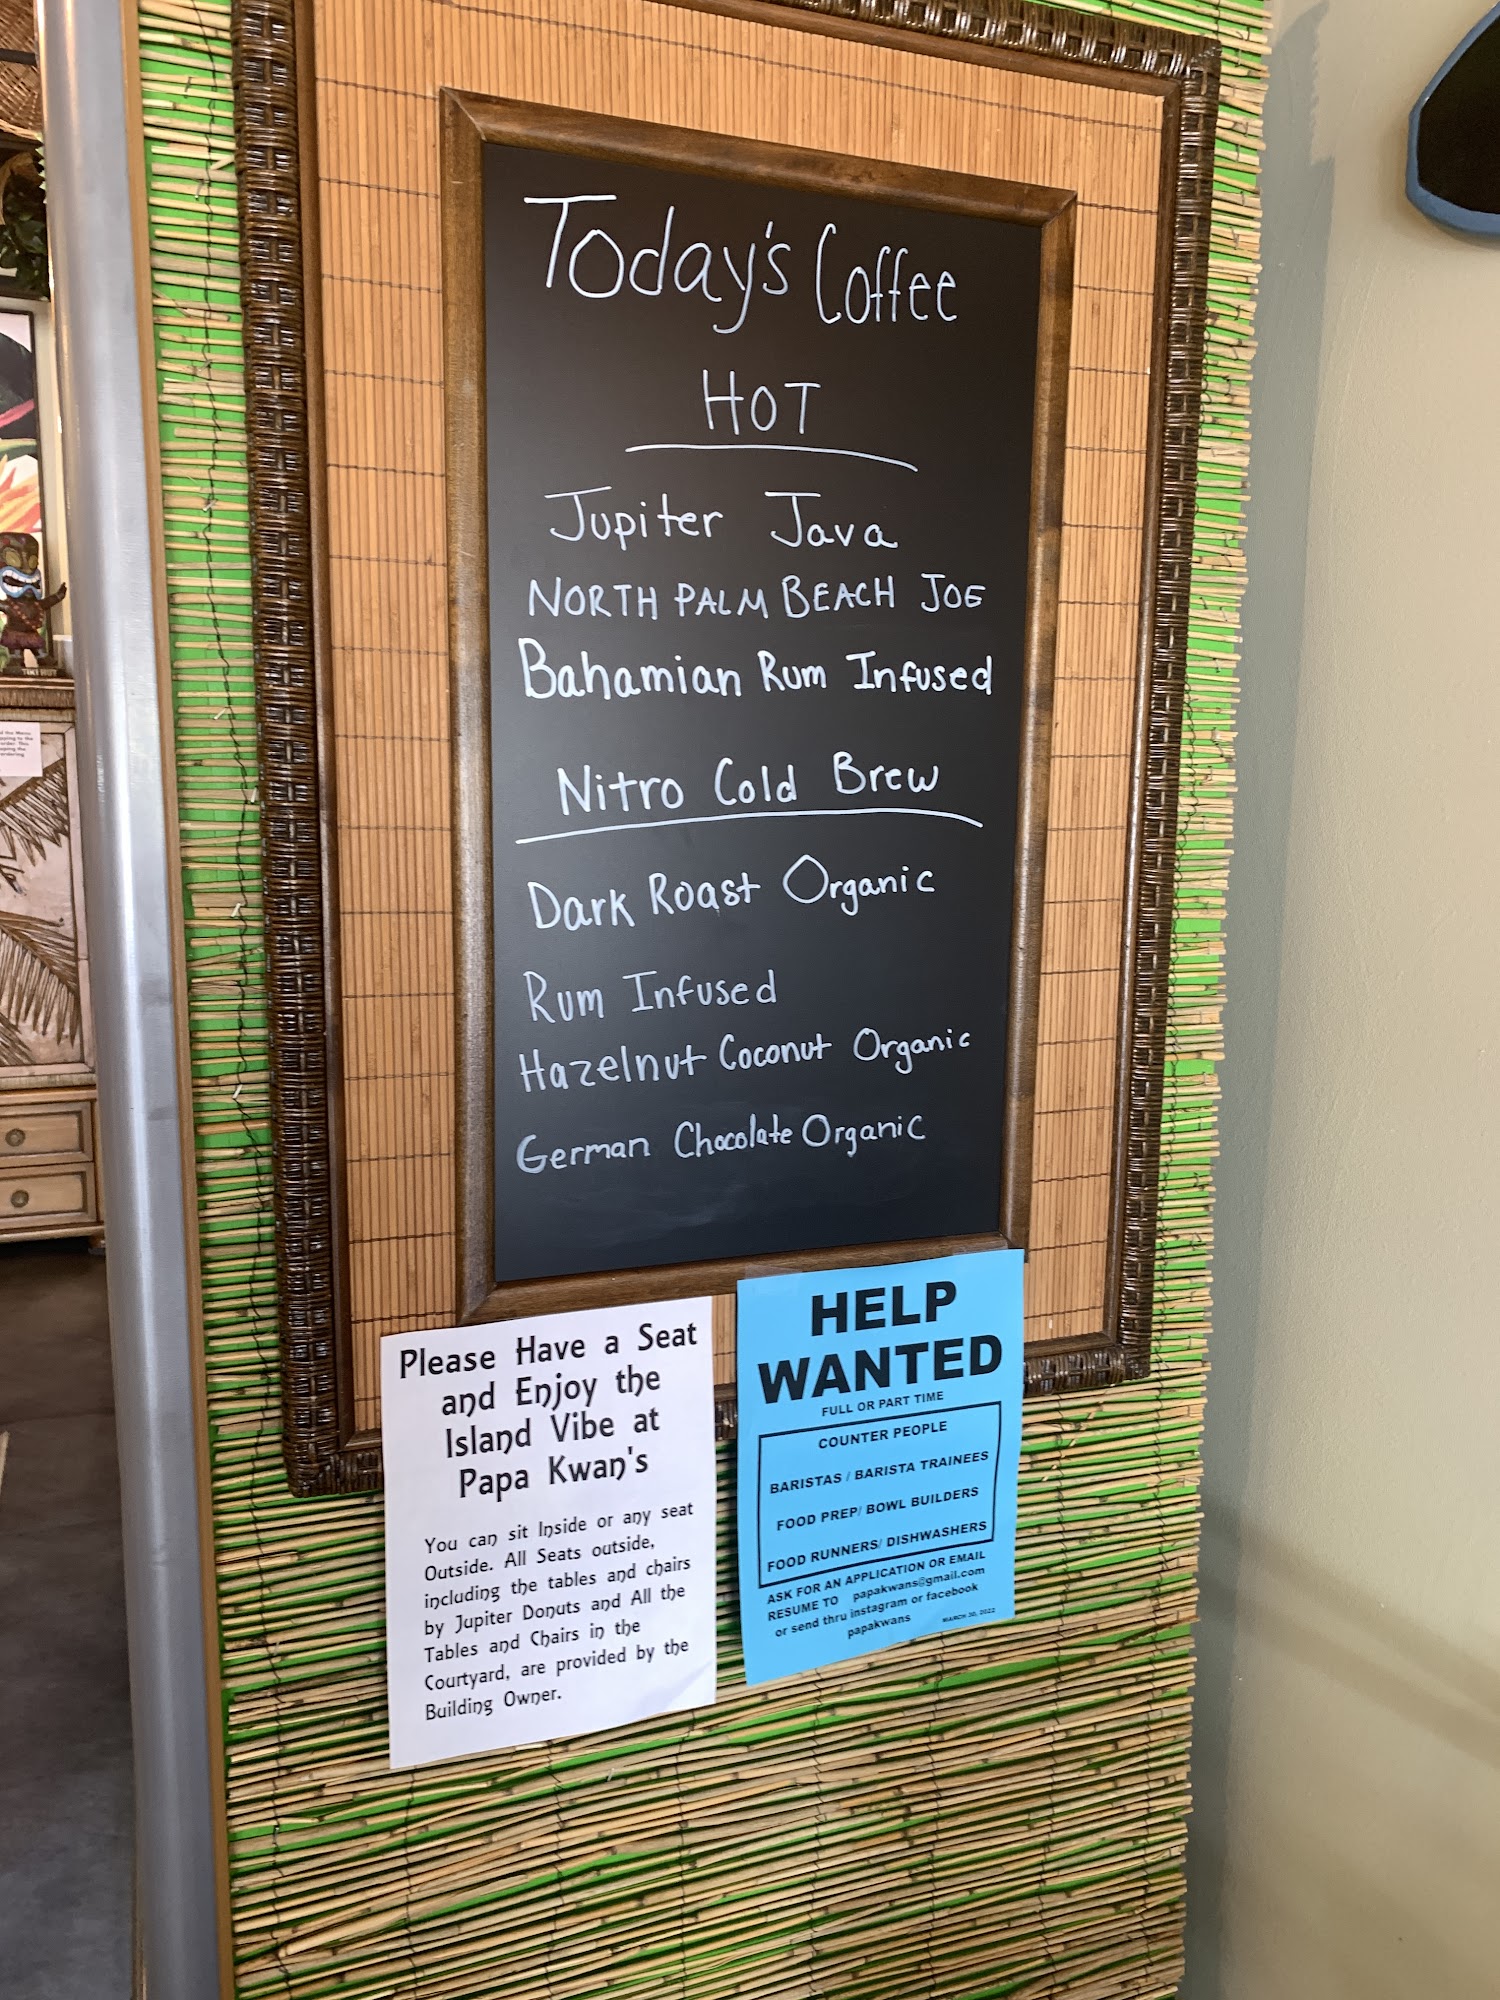 Today's Coffee
HOT
Jupiter Java
NORTH PALM BEACH JOE
Bahamian Rum Infused
Nitro Cold Brew
Dark Roast Organic
Rum Infused
Hazelnut Coconut Organic
German Chocolate Organic
Please Have a Seat
and Enjoy the
Island Vibe at
Papa Kwan's
You can sit Inside or any seat
Outside. All Seats outside,
including the tables and chairs
by Jupiter Donuts and All the
Tables and Chairs in the
Courtyard, are provided by the
Building Owner.
HELP
WANTED
FULL OR PART TIME
COUNTER PEOPLE
BARISTAS / BARISTA TRAINEES
FOOD PREP/ BOWL BUILDERS
FOOD RUNNERS/ DISHWASHERS
ASK FOR AN APPLICATION OR EMAIL
RESUME TO papakwans@gmail.com
or send thru instagram or facebook
papakwans
MARCH 30, 2022